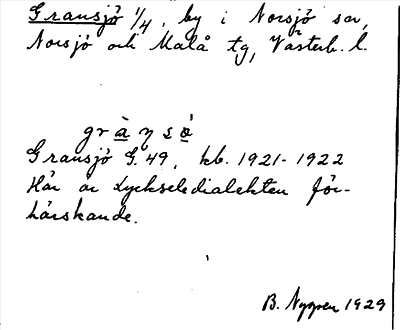 Gransjö 1/4, by i Norsjö sn,
Norsjö och Malå tg, Västerb. l.
grànsó
Gransjö G. 49, kb. 1921-1922
Här är Lycksele dialekten för-
härskande.
B. Nygren 1929